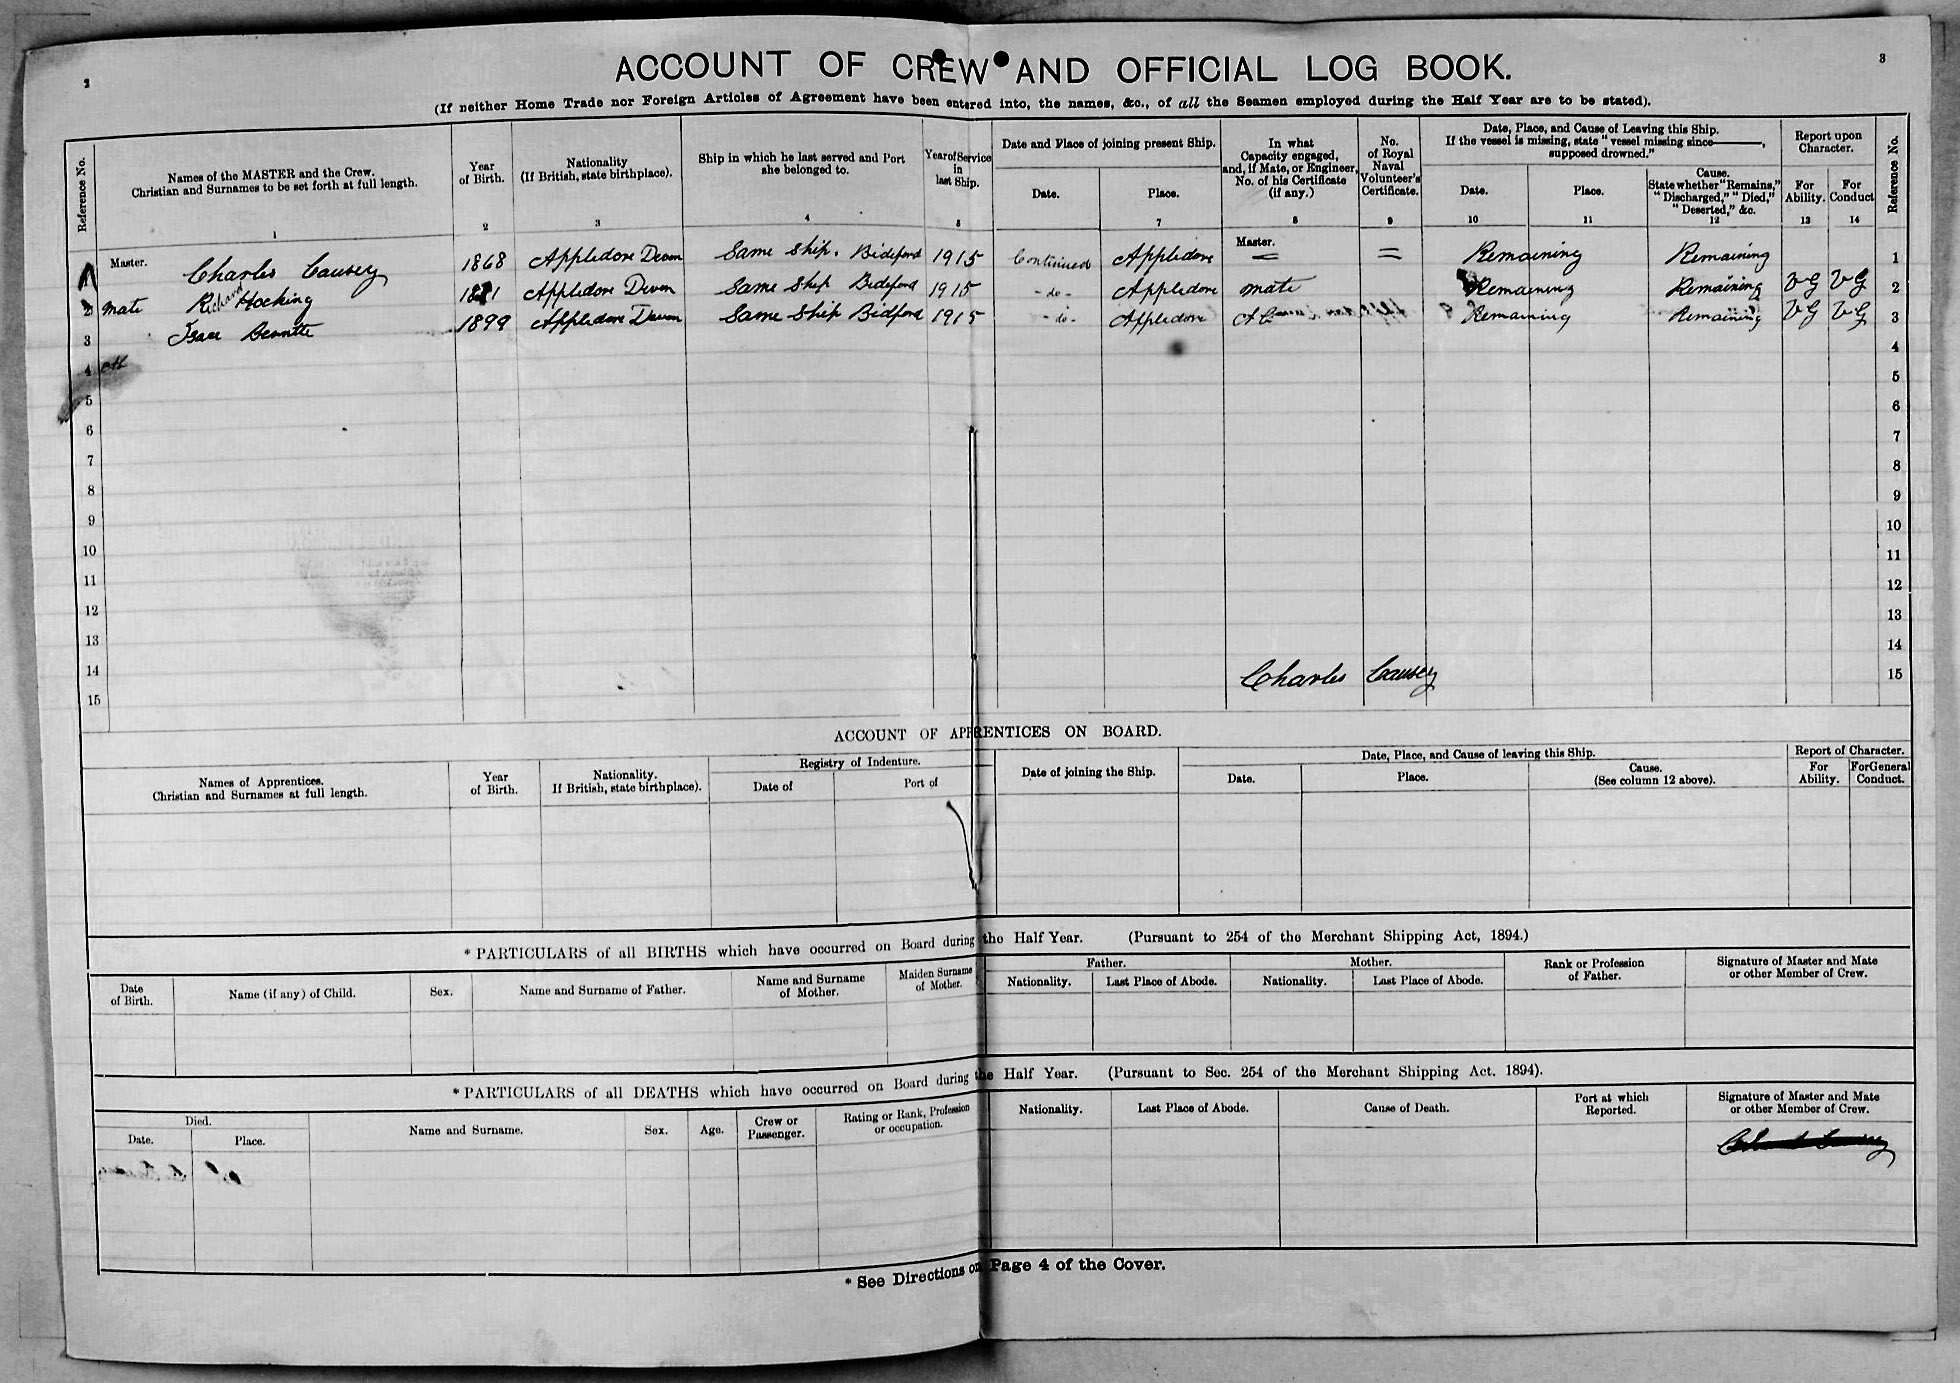 2
3
ACCOUNT OF CREW AND OFFICIAL LOG BOOK.
(If neither Home Trade nor Foreign Articles of Agreement have been entered into, the names, &c., of all the Seamen employed during the Half Year are to be stated).
Reference No.
Names of the MASTER and the Crew.
Christian and Surnames to be set forth at full length.
1
Year
of Birth.
2
Nationality
(If British, state birthplace).
3
Ship in which he last served and Port
she belonged to.
4
Year of Service
in
last Ship.
5
Date and Place of joining present Ship.
Date.
Place.
7
In what
Capacity engaged,
and, if Mate, or Engineer,
No. of his Certificate
(if any.)
8
No.
of Royal
Naval
Volunteer's
Certificate.
9
Date, Place, and Cause of Leaving this Ship.
If the vessel is missing, state "vessel missing since———,
supposed drowned."
Date.
10
Place.
11
Cause.
State whether "Remains,"
"Discharged," "Died,"
"Deserted," &c.
12
Report upon
Character.
For
Ability.
13
For
Conduct
14
Reference No.
Master. Charles Causey 1868 Appledore Devon Same Ship. Bideford 1915 Continued Appledore Master. = = Remaining Remaining 1
2 mate Richard Hocking Appledore Devon Same Ship Bideford 1915 - do - Appledore mate Remaining Remaining VG VG 2
3 Isaac 1899 Appledore Devon Same Ship Bidford 1915 - do - Appledore Remaining Remaining VG VG 3
4 4
5 5
6 6
7 7
8 8
9 9
10 10
11 11
12 12
13 13
14 14
15 Charles Causey 15
ACCOUNT OF APPRENTICES ON BOARD.
Names of Apprentices.
Christian and Surnames at full length.
Year
of Birth.
Nationality.
If British, state birthplace).
Registry of Indenture.
Date of
Port of
Date of joining the Ship.
Date, Place, and Cause of leaving this Ship.
Date.
Place.
Cause.
(See column 12 above).
Report of Character.
For
Ability.
For General
Conduct.
* PARTICULARS of all BIRTHS which have occurred on Board during the Half Year. (Pursuant to 254 of the Merchant Shipping Act, 1894.)
Date
of Birth.
Name (if any) of Child.
Sex.
Name and Surname of Father.
Name and Surname
of Mother.
Maiden Surname
of Mother.
Father.
Nationality.
Last Place of Abode.
Mother.
Nationality.
Last Place of Abode.
Rank or Profession
of Father.
Signature of Master and Mate
or other Member of Crew.
* PARTICULARS of all DEATHS which have occurred on Board during the Half Year. (Pursuant to Sec. 254 of the Merchant Shipping Act. 1894).
Died.
Date.
Place.
Name and Surname.
Sex.
Age.
Crew or
Passenger.
Rating or Rank, Profession
or occupation.
Nationality.
Last Place of Abode.
Cause of Death.
Port at which
Reported.
Signature of Master and Mate
or other Member of Crew.
* See Directions on Page 4 of the Cover.